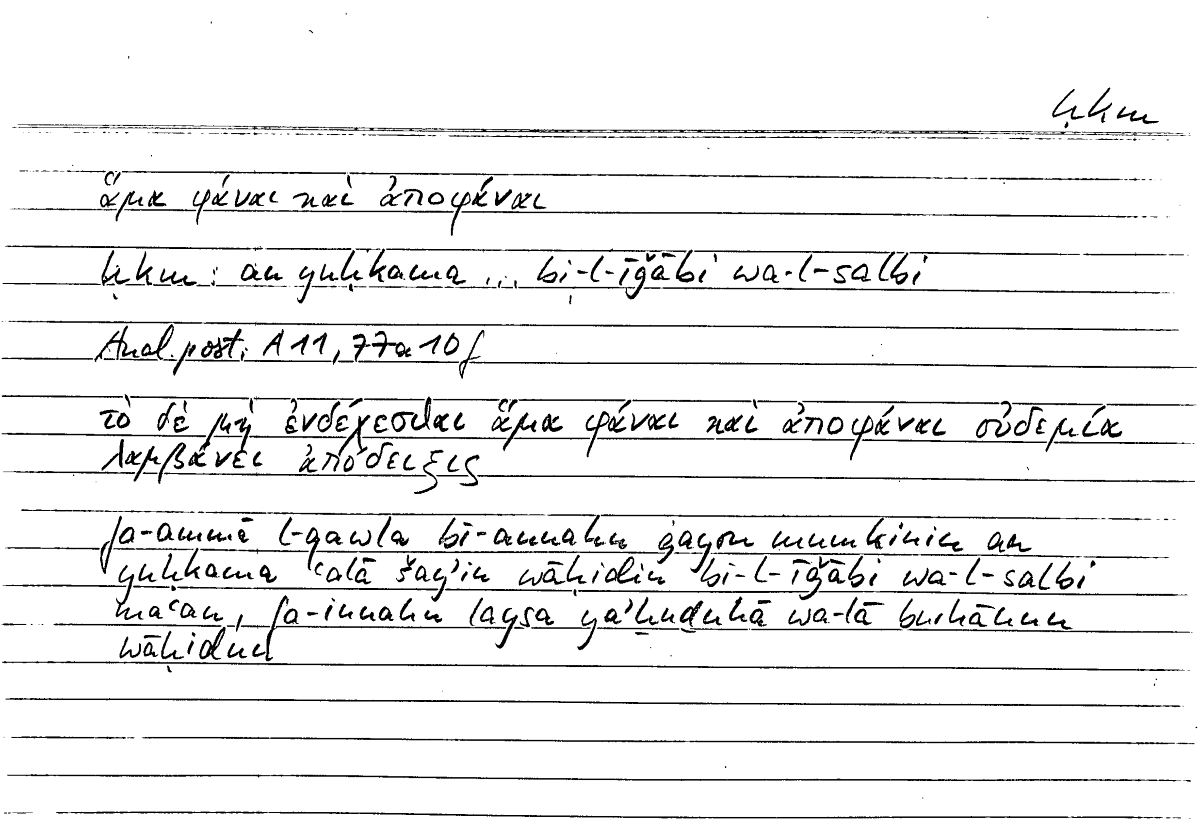 ḥkm
ἅμα φάναι καὶ ἀποφάναι
ḥkm : an yuḥkama ... bi-l-īǧābi wa-l-salbi
Anal. post. A 11, 77a10f
τὸ δὲ μὴ ἐνδέχεσθαι ἅμα φάναι καὶ ἀποφάναι οὐδεμία
λαμβάνει ἀπόδειξις
fa-ammā l-qawla bi-annahu ġayru mumkinin an
yuḥkama ʿalā šayʾin wāḥidin bi-l-īǧābi wa-l-salbi
maʿan, fa-innahu laysa yaʾḫuḏuhā wa-lā burhānun
wāḥidun